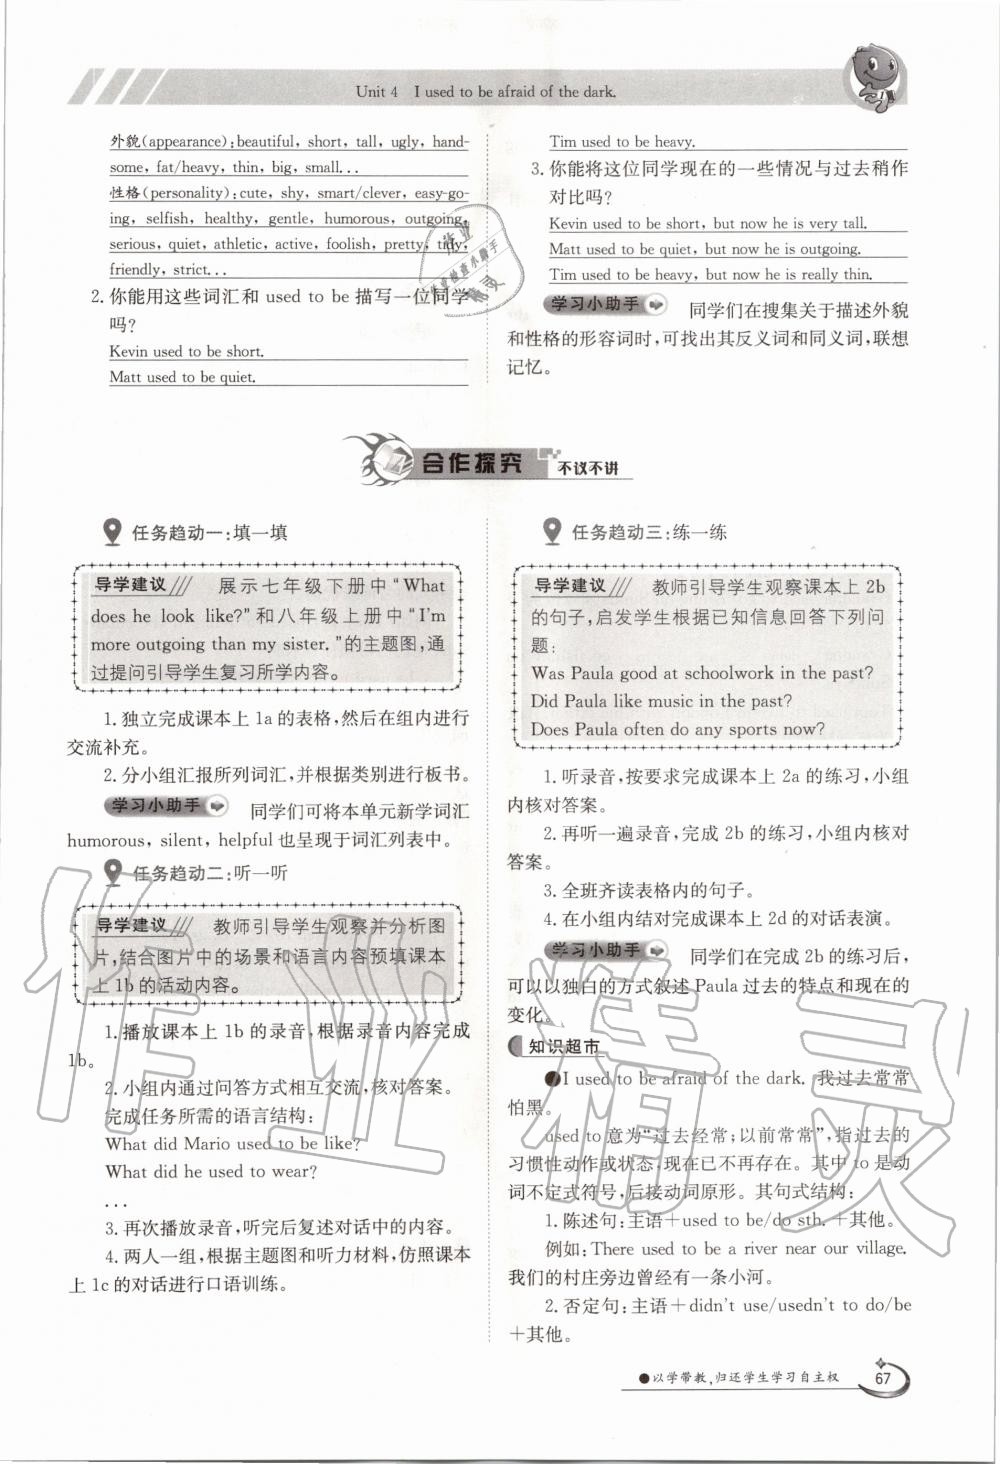 Unit 4 I used to be afraid of the dark.
外貌(appearance):beautiful, short, tall, ugly, hand-
some, fat/heavy, thin, big, small...
性格(personality):cute, shy, smart/clever, easy-go-
ing, selfish, healthy, gentle, humorous, outgoing,
serious, quiet, athletic, active, foolish, pretty, tidy,
friendly, strict...
2.你能用这些词汇和 used to be 描写一位同学
吗?
Kevin used to be short.
Matt used to be quiet.
Tim used to be heavy.
3.你能将这位同学现在的一些情况与过去稍作
对比吗?
Kevin used to be short, but now he is very tall.
Matt used to be quiet, but now he is outgoing.
Tim used to be heavy, but now he is really thin.
学习小助手 同学们在搜集关于描述外貌
和性格的形容词时,可找出其反义词和同义词,联想
记忆。
合作探究 不议不讲
任务趋动一:填一填
导学建议 展示七年级下册中“What
does he look like?”和八年级上册中“I'm
more outgoing than my sister.”的主题图,通
过提问引导学生复习所学内容。
1.独立完成课本上 1a 的表格,然后在组内进行
交流补充。
2.分小组汇报所列词汇,并根据类别进行板书。
学习小助手 同学们可将本单元新学词汇
humorous, silent, helpful 也呈现于词汇列表中。
任务趋动二:听一听
导学建议 教师引导学生观察并分析图
片,结合图片中的场景和语言内容预填课本
上 1b 的活动内容。
1.播放课本上 1b 的录音,根据录音内容完成
1b。
2.小组内通过问答方式相互交流,核对答案。
完成任务所需的语言结构:
What did Mario used to be like?
What did he used to wear?
...
3.再次播放录音,听完后复述对话中的内容。
4.两人一组,根据主题图和听力材料,仿照课本
上 1c 的对话进行口语训练。
任务趋动三:练一练
导学建议 教师引导学生观察课本上 2b
的句子,启发学生根据已知信息回答下列问
题:
Was Paula good at schoolwork in the past?
Did Paula like music in the past?
Does Paula often do any sports now?
1.听录音,按要求完成课本上 2a 的练习,小组
内核对答案。
2.再听一遍录音,完成 2b 的练习,小组内核对
答案。
3.全班齐读表格内的句子。
4.在小组内结对完成课本上 2d 的对话表演。
学习小助手 同学们在完成 2b 的练习后,
可以以独白的方式叙述 Paula 过去的特点和现在的
变化。
知识超市
●I used to be afraid of the dark. 我过去常常
怕黑。
used to 意为“过去经常;以前常常”,指过去的
习惯性动作或状态,现在已不再存在。其中 to 是动
词不定式符号,后接动词原形。其句式结构:
1.陈述句:主语+used to be/do sth.+其他。
例如:There used to be a river near our village.
我们的村庄旁边曾经有一条小河。
2.否定句:主语+didn't use/usedn't to do/be
+其他。
●以学带教,归还学生学习自主权 67
作业精灵